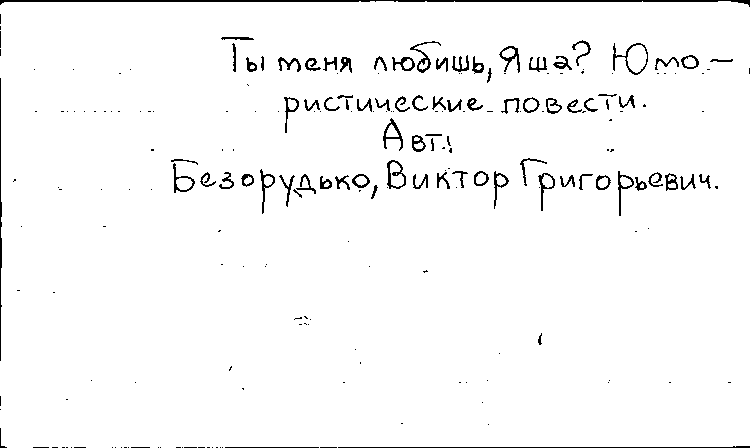 Ты меня любишь, Яша? Юмо-
ристические повести.
Авт.:
Безорудько, Виктор Григорьевич.